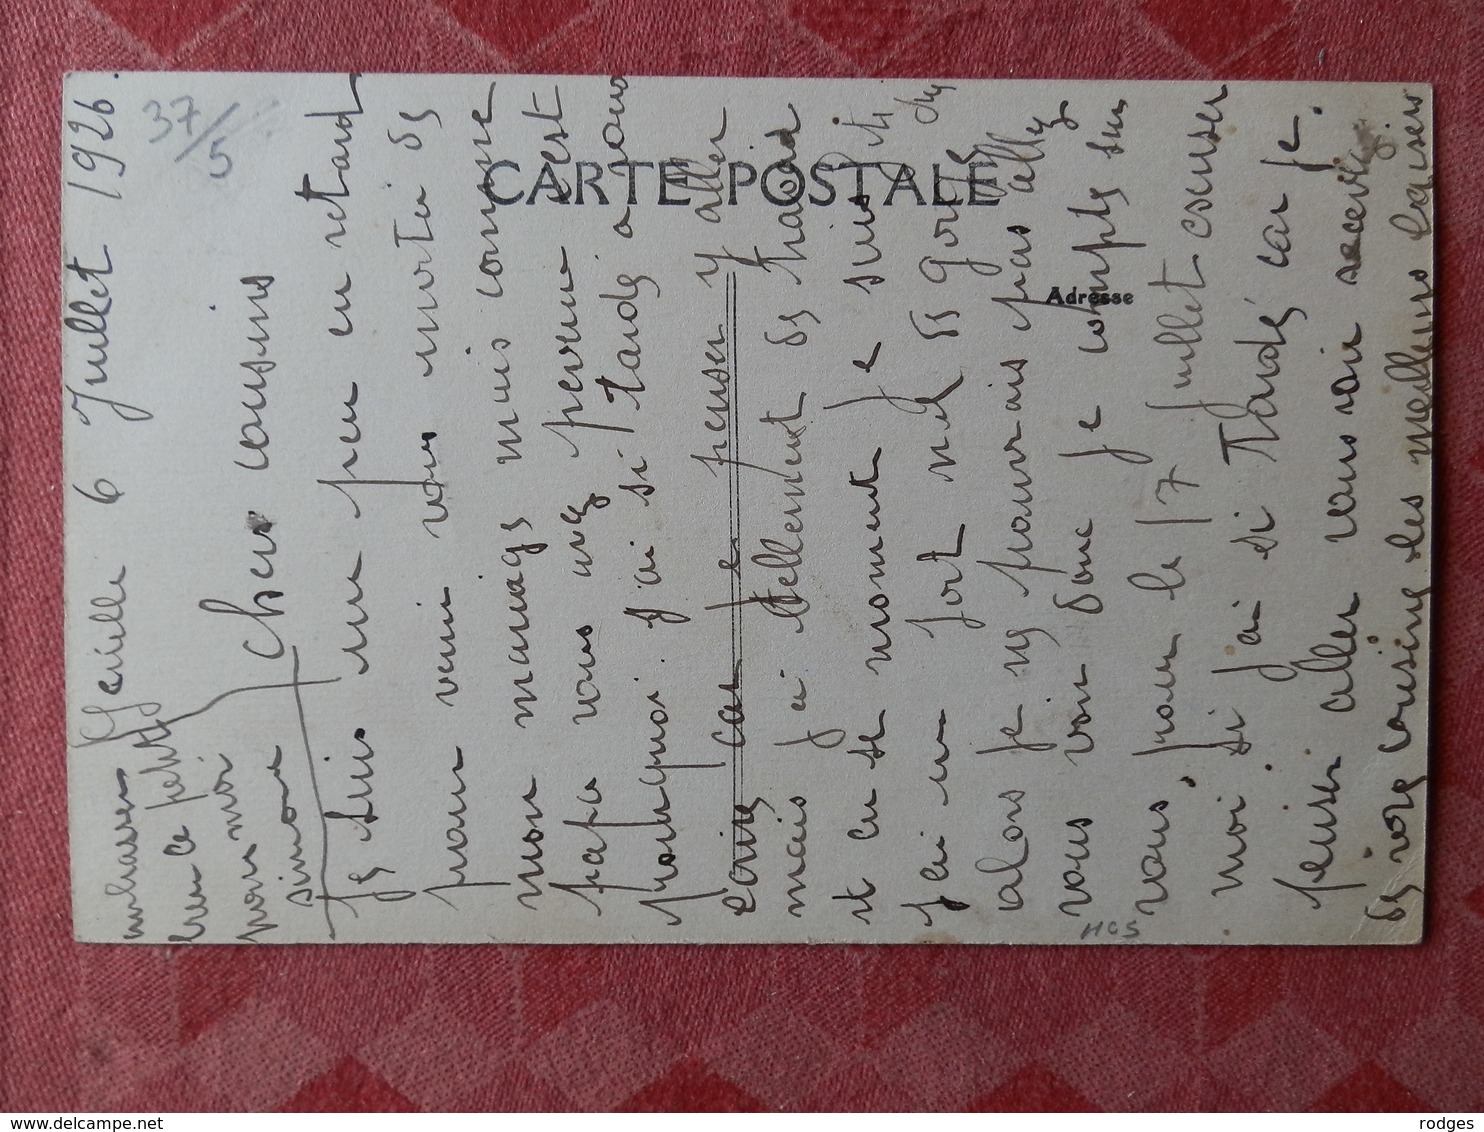 Juillet 6 Juillet 1926.
37/5
Chers cousins
Je suis un peu en retard
pour venir vous invité de
mon mariage mais comme
papa vous avez prevenu c'est
pourquoi j'ai si tardé a vous
ecrire car je penser y aller
mais j'ai tellement de travail
et en se moment je suis
j'ai un fort mal de gorge
alors je ne pourrais pas allez
vous voir donc je compte sur
vous, pour le 17 juillet escuser
moi si j'ai si Tardé car je
penser aller vous voir recevez
de votre cousine les meilleurs baisers
embrasser
bien ce petit
pour moi
simone
CARTE POSTALE
Adresse
HG5
rodges
delcampe.net